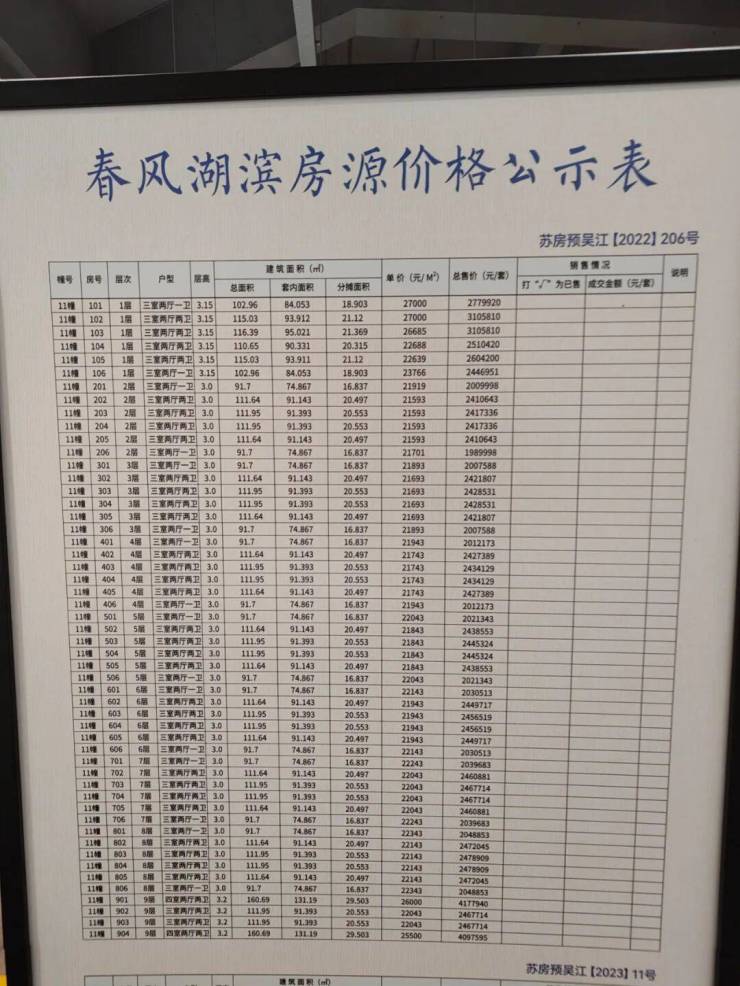 春风湖滨房源价格公示表
苏房预吴江【2022】206号
幢号 房号 层次 户型 层高 建筑面积（㎡） 单价（元/M²） 总售价（元/套） 销售情况 说明
总面积 套内面积 分摊面积 打“√”为已售 成交金额（元/套）
11幢 101 1层 三室两厅一卫 3.15 102.96 84.053 18.903 27000 2779920
11幢 102 1层 三室两厅两卫 3.15 115.03 93.912 21.12 27000 3105810
11幢 103 1层 三室两厅两卫 3.15 116.39 95.021 21.369 26685 3105810
11幢 104 1层 三室两厅两卫 3.15 110.65 90.331 20.315 22688 2510420
11幢 105 1层 三室两厅两卫 3.15 115.03 93.911 21.12 22639 2604200
11幢 106 1层 三室两厅一卫 3.15 102.96 84.053 18.903 23766 2446951
11幢 201 2层 三室两厅一卫 3.0 91.7 74.867 16.837 21919 2009998
11幢 202 2层 三室两厅两卫 3.0 111.64 91.143 20.497 21593 2410643
11幢 203 2层 三室两厅两卫 3.0 111.95 91.393 20.553 21593 2417336
11幢 204 2层 三室两厅两卫 3.0 111.95 91.393 20.553 21593 2417336
11幢 205 2层 三室两厅两卫 3.0 111.64 91.143 20.497 21593 2410643
11幢 206 2层 三室两厅一卫 3.0 91.7 74.867 16.837 21701 1989998
11幢 301 3层 三室两厅一卫 3.0 91.7 74.867 16.837 21893 2007588
11幢 302 3层 三室两厅两卫 3.0 111.64 91.143 20.497 21693 2421807
11幢 303 3层 三室两厅两卫 3.0 111.95 91.393 20.553 21693 2428531
11幢 304 3层 三室两厅两卫 3.0 111.95 91.393 20.553 21693 2428531
11幢 305 3层 三室两厅两卫 3.0 111.64 91.143 20.497 21693 2421807
11幢 306 3层 三室两厅一卫 3.0 91.7 74.867 16.837 21893 2007588
11幢 401 4层 三室两厅一卫 3.0 91.7 74.867 16.837 21943 2012173
11幢 402 4层 三室两厅两卫 3.0 111.64 91.143 20.497 21743 2427389
11幢 403 4层 三室两厅两卫 3.0 111.95 91.393 20.553 21743 2434129
11幢 404 4层 三室两厅两卫 3.0 111.95 91.393 20.553 21743 2434129
11幢 405 4层 三室两厅两卫 3.0 111.64 91.143 20.497 21743 2427389
11幢 406 4层 三室两厅一卫 3.0 91.7 74.867 16.837 21943 2012173
11幢 501 5层 三室两厅一卫 3.0 91.7 74.867 16.837 22043 2021343
11幢 502 5层 三室两厅两卫 3.0 111.64 91.143 20.497 21843 2438553
11幢 503 5层 三室两厅两卫 3.0 111.95 91.393 20.553 21843 2445324
11幢 504 5层 三室两厅两卫 3.0 111.95 91.393 20.553 21843 2445324
11幢 505 5层 三室两厅两卫 3.0 111.64 91.143 20.497 21843 2438553
11幢 506 5层 三室两厅一卫 3.0 91.7 74.867 16.837 22043 2021343
11幢 601 6层 三室两厅一卫 3.0 91.7 74.867 16.837 22143 2030513
11幢 602 6层 三室两厅两卫 3.0 111.64 91.143 20.497 21943 2449717
11幢 603 6层 三室两厅两卫 3.0 111.95 91.393 20.553 21943 2456519
11幢 604 6层 三室两厅两卫 3.0 111.95 91.393 20.553 21943 2456519
11幢 605 6层 三室两厅两卫 3.0 111.64 91.143 20.497 21943 2449717
11幢 606 6层 三室两厅一卫 3.0 91.7 74.867 16.837 22143 2030513
11幢 701 7层 三室两厅一卫 3.0 91.7 74.867 16.837 22243 2039683
11幢 702 7层 三室两厅两卫 3.0 111.64 91.143 20.497 22043 2460881
11幢 703 7层 三室两厅两卫 3.0 111.95 91.393 20.553 22043 2467714
11幢 704 7层 三室两厅两卫 3.0 111.95 91.393 20.553 22043 2467714
11幢 705 7层 三室两厅两卫 3.0 111.64 91.143 20.497 22043 2460881
11幢 706 7层 三室两厅一卫 3.0 91.7 74.867 16.837 22243 2039683
11幢 801 8层 三室两厅一卫 3.0 91.7 74.867 16.837 22343 2048853
11幢 802 8层 三室两厅两卫 3.0 111.64 91.143 20.497 22143 2472045
11幢 803 8层 三室两厅两卫 3.0 111.95 91.393 20.553 22143 2478909
11幢 804 8层 三室两厅两卫 3.0 111.95 91.393 20.553 22143 2478909
11幢 805 8层 三室两厅两卫 3.0 111.64 91.143 20.497 22143 2472045
11幢 806 8层 三室两厅一卫 3.0 91.7 74.867 16.837 22343 2048853
11幢 901 9层 四室两厅两卫 3.2 160.69 131.19 29.503 26000 4177940
11幢 902 9层 三室两厅两卫 3.2 111.95 91.393 20.553 22043 2467714
11幢 903 9层 三室两厅两卫 3.2 111.95 91.393 20.553 22043 2467714
11幢 904 9层 四室两厅两卫 3.2 160.69 131.19 29.503 25500 4097595
苏房预吴江【2023】11号
建筑面积（㎡）